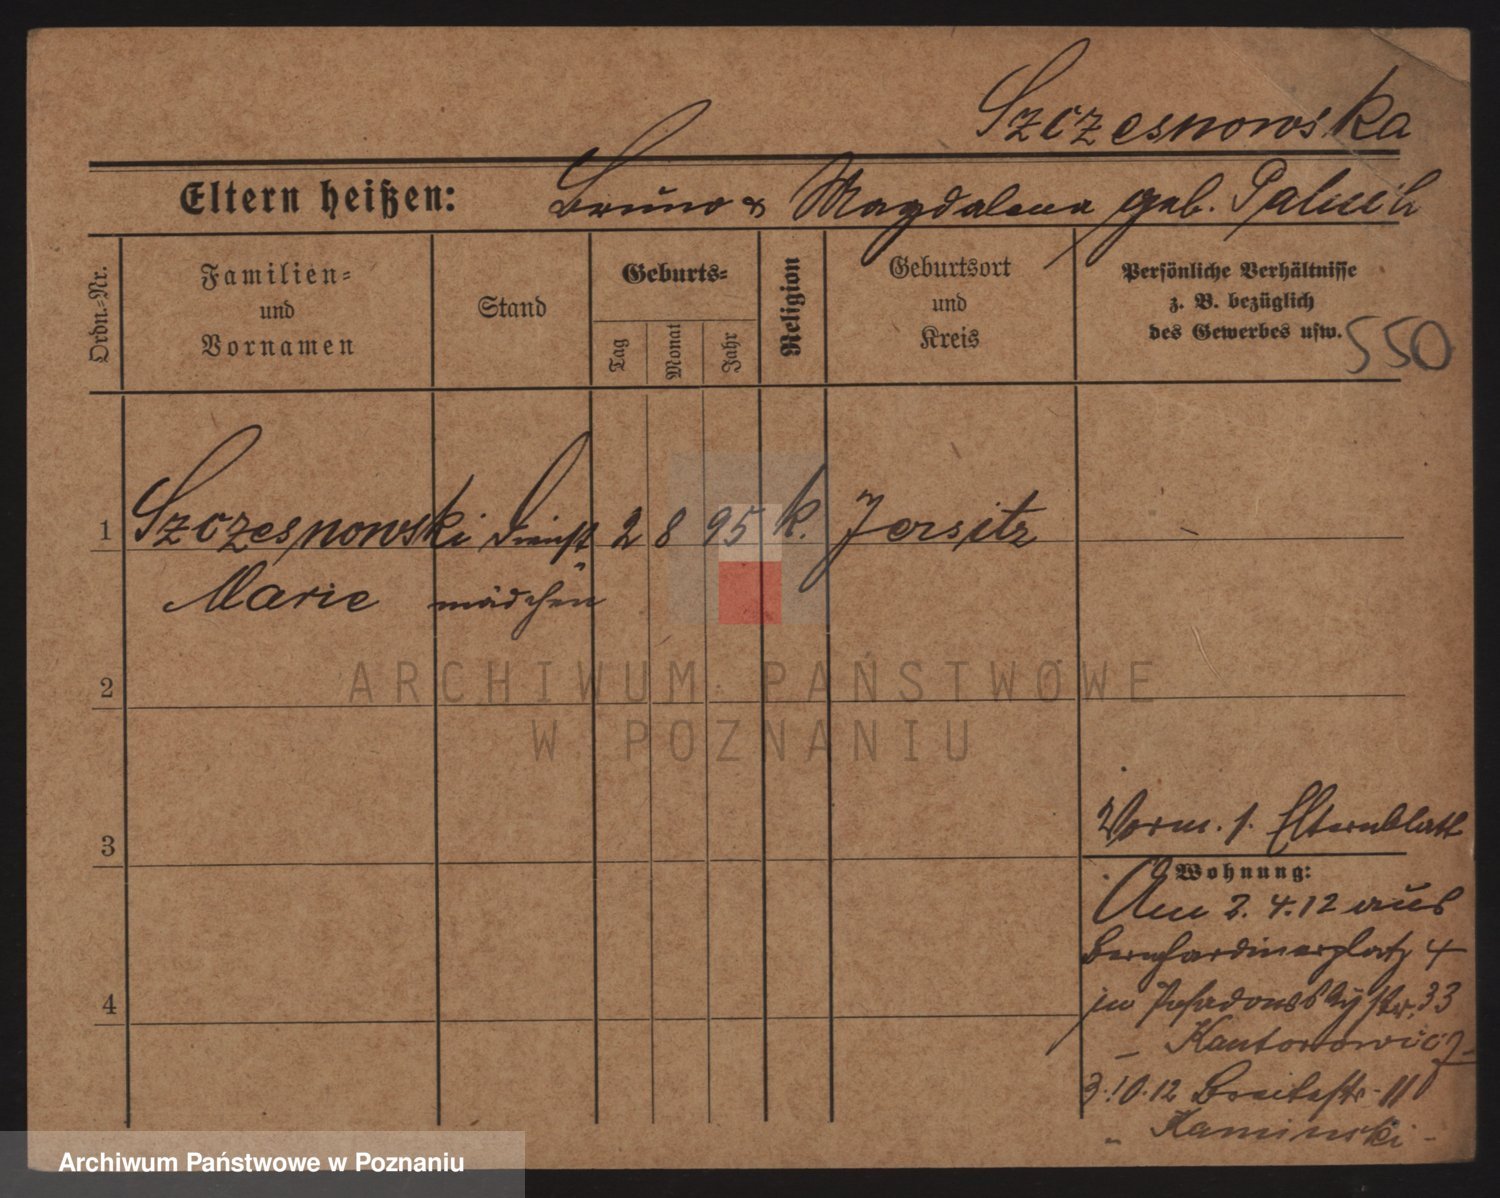 Szczesnowska
Eltern heißen: Bruno & Magdalena geb. Paluch
Ordn.-Nr.
Familien-
und
Vornamen
Stand
Geburts-
Tag
Monat
Jahr
Religion
Geburtsort
und
Kreis
Persönliche Verhältnisse
z. B. bezüglich
des Gewerbes usw.
550
1 Szczesnowski Dienst 2 8 95 k. Jersitz
Marie mädchen
2
ARCHIWUM PAŃSTWOWE
W POZNANIU
3
Vorm. s. Elternblatt
Wohnung:
Am 2.4.12 aus
Bernhardinerplatz 4
in Posadowskystr. 33
– Kantorowicz –
4
3.10.12 Breitestr. 11
– Kaminski –
Archiwum Państwowe w Poznaniu